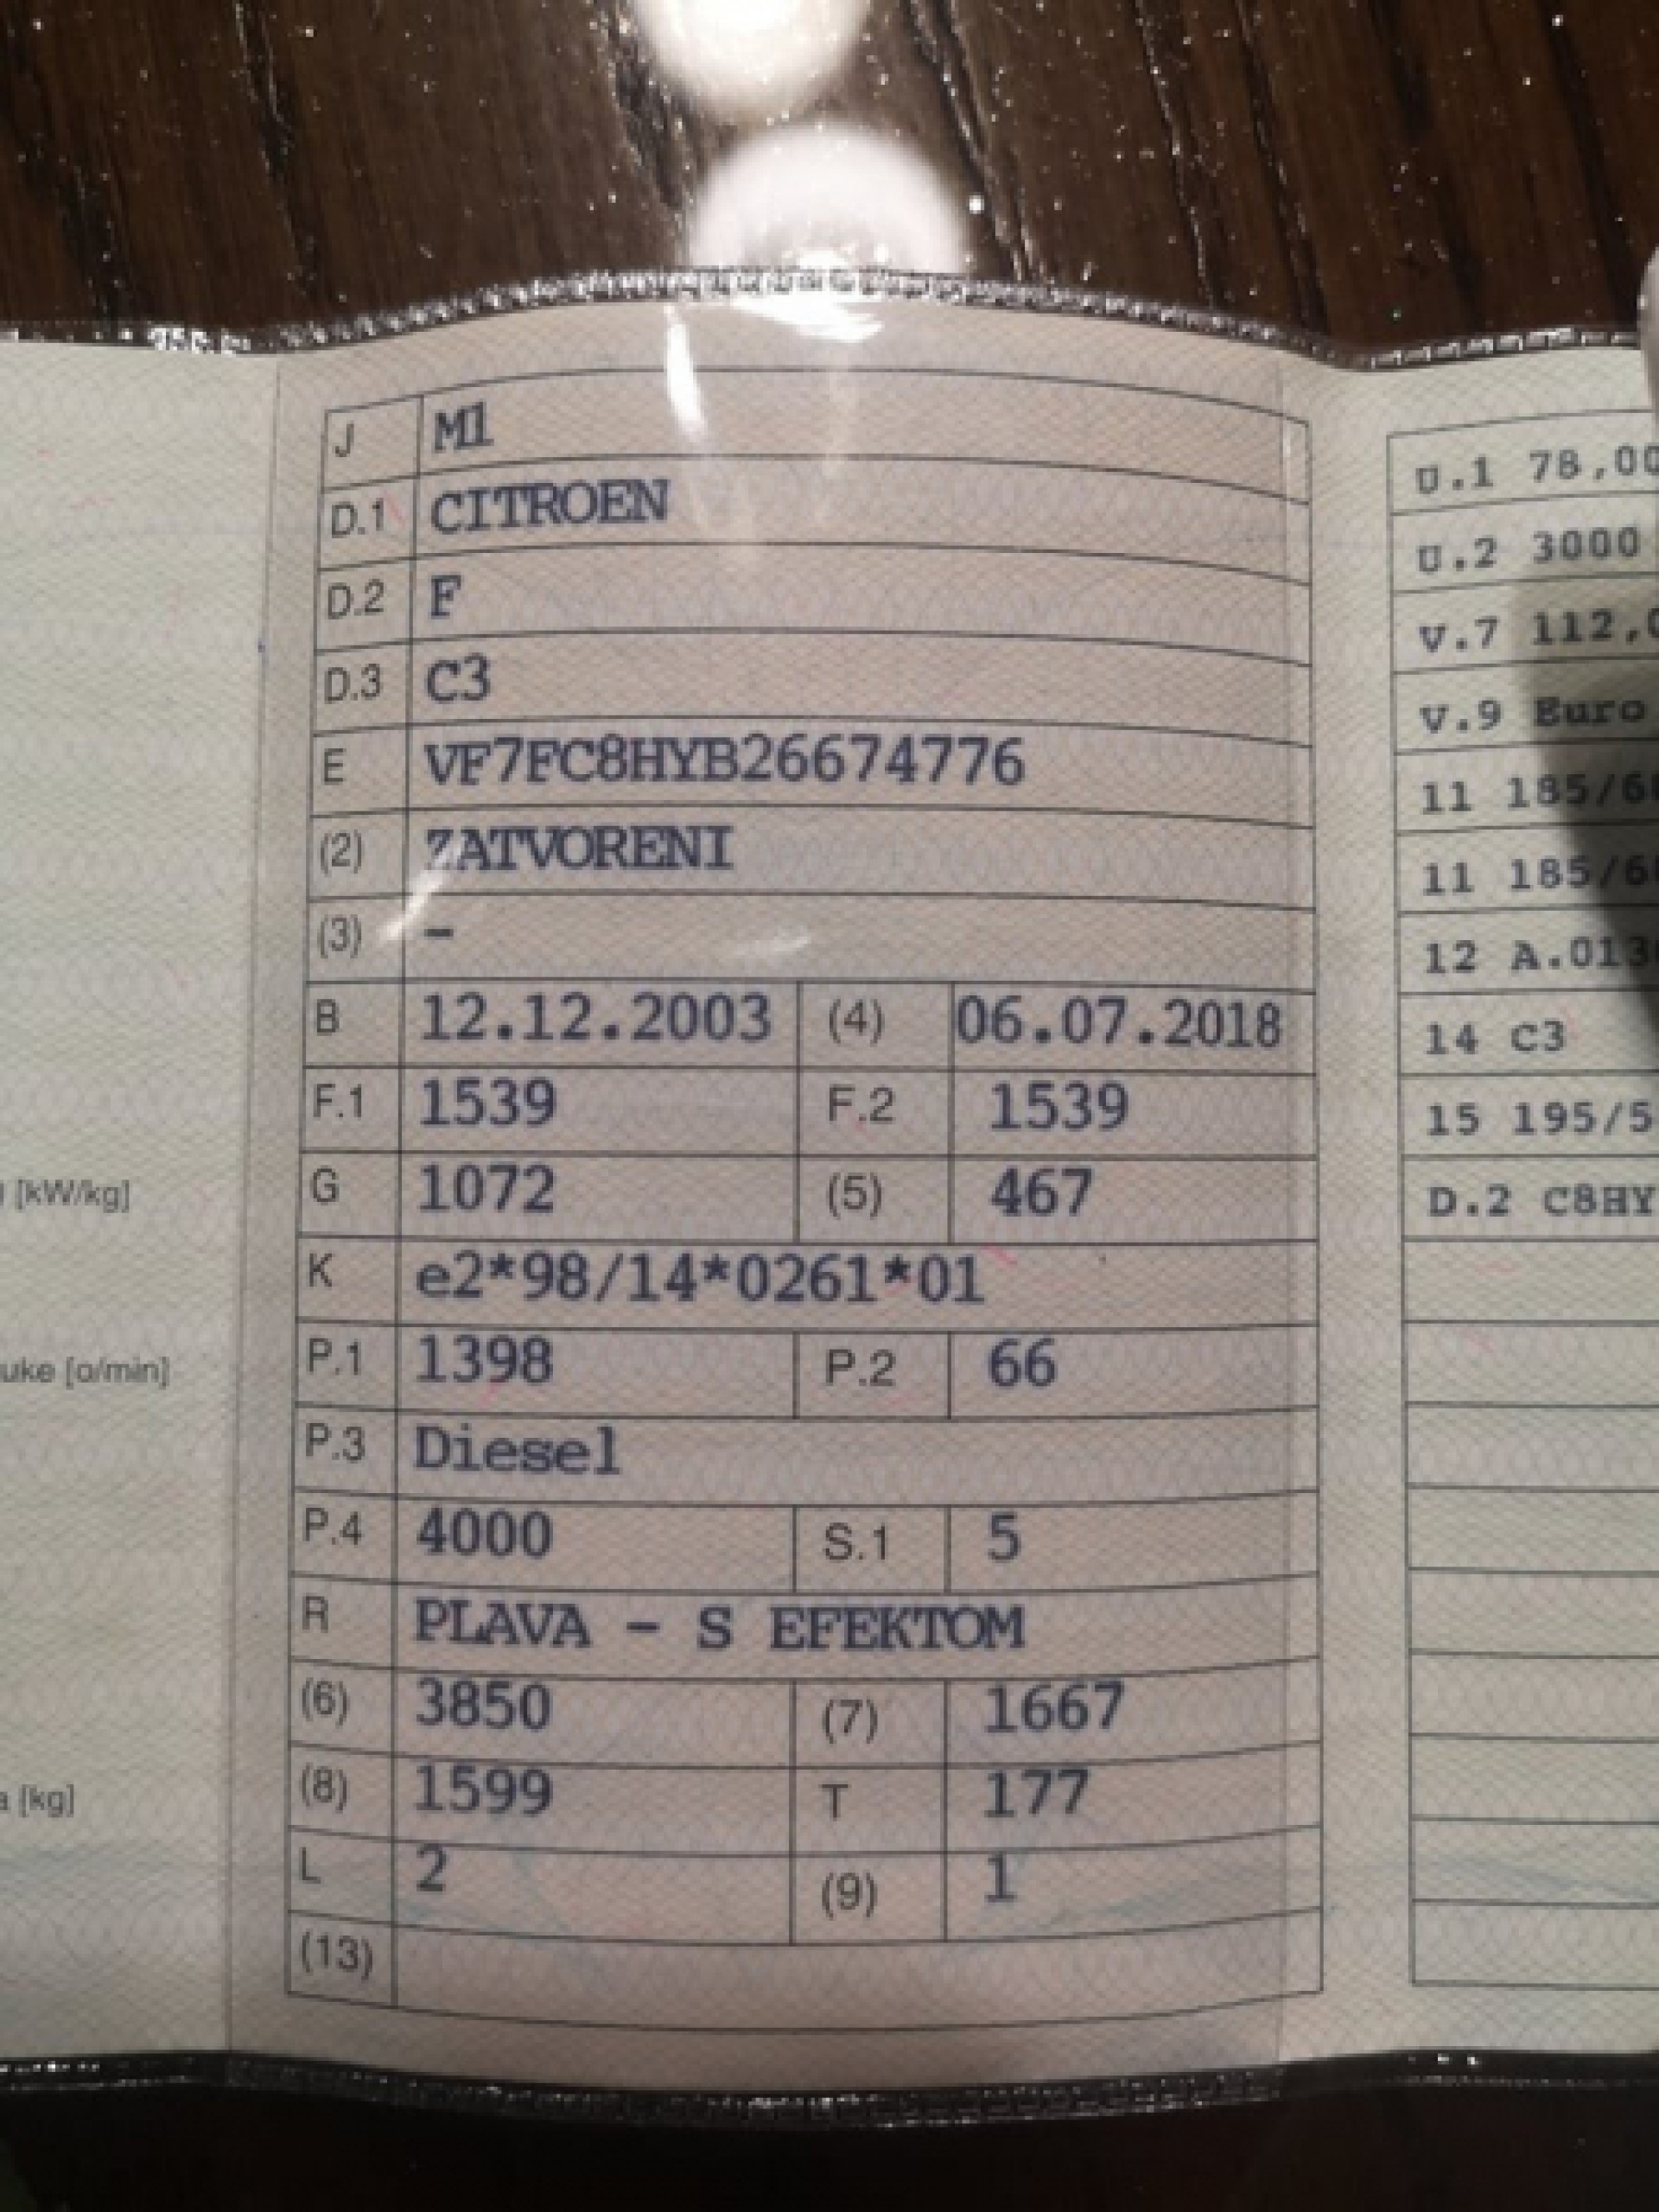 [kW/kg]
uke [o/min]
a [kg]
J M1
D.1 CITROEN
D.2 F
D.3 C3
E VF7FC8HYB26674776
(2) ZATVORENI
(3) -
B 12.12.2003 (4) 06.07.2018
F.1 1539 F.2 1539
G 1072 (5) 467
K e2*98/14*0261*01
P.1 1398 P.2 66
P.3 Diesel
P.4 4000 S.1 5
R PLAVA - S EFEKTOM
(6) 3850 (7) 1667
(8) 1599 T 177
L 2 (9) 1
(13)
U.1 78,00
U.2 3000
V.7 112,0
V.9 Euro
11 185/6
11 185/6
12 A.013
14 C3
15 195/5
D.2 C8HY